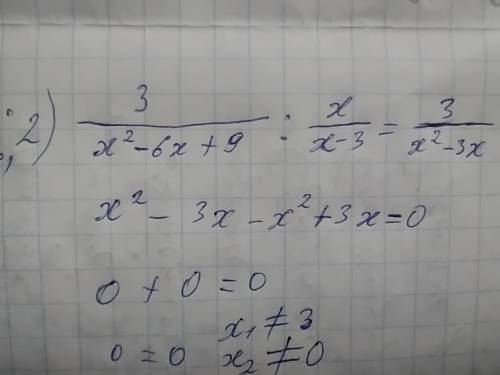 2) 3/(x²-6x+9) : x/(x-3) = 3/(x²-3x)
x² - 3x - x² + 3x = 0
0 + 0 = 0
x₁ ≠ 3
0 = 0 x₂ ≠ 0